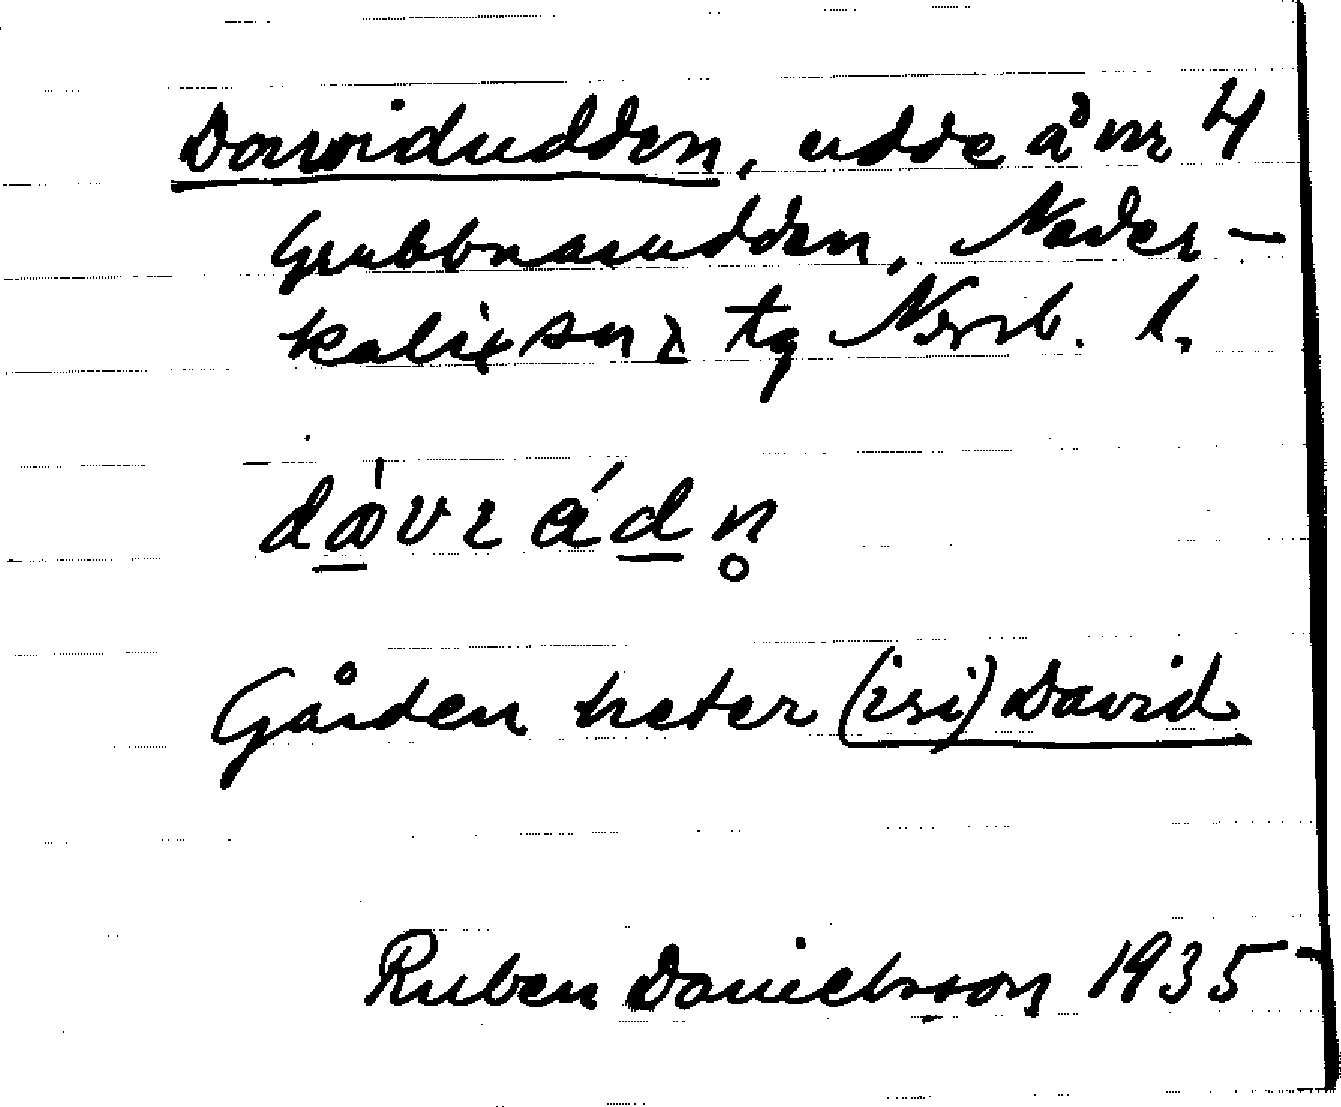 Davidudden, udde å nr 4
Grubbnäsudden, Neder-
kalix sn, tg Norrb. l.
Gården heter (isi) David
Ruben Danielsson 1935